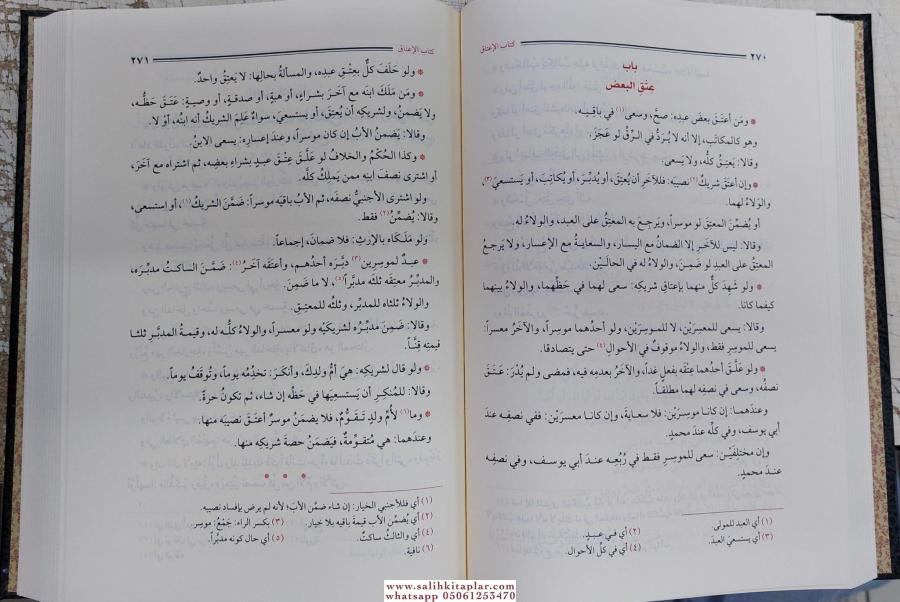 ٢٧٠
كتاب الإعتاق
باب
عِتْق البعض
* ومَن أعتَقَ بعضَ عبدِه: صحَّ، وسعى(١) في باقيه.
وهو كالمكاتَب، إلا أنه لا يُرَدُّ في الرِّقِّ لو عَجَزَ.
وقالا: يَعتِقُ كلُّه، ولا يَسعى.
* وإن أعتَقَ شريكٌ(٢) نصيبَه: فللآخرِ أن يُعتِقَ، أو يُدبِّرَ، أو يُكاتِبَ، أو يَستسعيَ(٣)،
والولاءُ لهما.
أو يُضمِّنَ المعتِقَ لو موسراً، ويَرجعَ به المعتِقُ على العبد، والولاءُ له.
وقالا: ليس للآخر إلا الضمانُ مع اليسار، والسعايةُ مع الإعسار، ولا يَرجعُ
المعتِقُ على العبدِ لو ضَمِنَ، والولاءُ له في الحالَيْن.
* ولو شَهِدَ كلٌّ منهما بإعتاق شريكِه: سعى لهما في حَظِّهما، والولاءُ بينهما
كيفما كانا.
وقالا: يسعى للمعسِرَيْن، لا للموسِرَيْن، ولو أحدُهما موسراً، والآخَرُ معسراً:
يسعى للموسِرِ فقط، والولاءُ موقوفٌ في الأحوال(٤) حتى يتصادقا.
* ولو علَّقَ أحدُهما عِتْقَه بفعلٍ غداً، والآخَرُ بعدمِه فيه، فمضى ولم يُدْرَ: عَتَقَ
نصفُه، وسعى في نصفِه لهما مطلقاً.
وعندَهما: إن كانا موسِرَيْن: فلا سعايةَ، وإن كانا معسرَيْن: ففي نصفِه عند
أبي يوسف، وفي كلِّه عند محمدٍ.
وإن مختلِفَيْن: سعى للموسِرِ فقط في رُبُعِه عندَ أبي يوسف، وفي نصفِه
عندَ محمدٍ.
(١) أي العبد للمولى.
(٢) أي في عبدٍ.
(٣) أي يستسعيَ العبدَ.
(٤) أي في كلِّ الأحوال.
كتاب الإعتاق
٢٧١
* ولو حَلَفَ كلٌّ بعِتْقِ عبدِه، والمسألةُ بحالِها: لا يَعتِقُ واحدٌ.
* ومَن مَلَكَ ابنَه مع آخَرَ بشراءٍ، أو هبةٍ، أو صدقةٍ، أو وصيةٍ: عَتَقَ حَظُّه،
ولا يَضمنُ، ولشريكِه أن يُعتِقَ، أو يستسعيَ، سواءٌ عَلِمَ الشريكُ أنه ابنُه، أوْ لا.
وقالا: يَضمنُ الأبُ إن كان موسراً، وعند إعساره: يسعى الابنُ.
* وكذا الحُكْمُ والخلافُ لو علَّقَ عِتْقَ عبدٍ بشراءِ بعضِه، ثم اشتراه مع آخَرَ،
أو اشترى نصفَ ابنِه ممن يَملِكُ كلَّه.
ولو اشترى الأجنبيُّ نصفَه، ثم الأبُ باقيَه موسراً: ضَمَّنَ الشريكُ(١)، أو استسعى،
وقالا: يُضمِّنُ(٢) فقط.
ولو مَلَكَاه بالإرثِ: فلا ضمانَ، إجماعاً.
* عبدٌ لموسِرِين(٣) دبَّرَه أحدُهم، وأعتَقَه آخَرُ(٤): ضَمَّنَ الساكتُ مدبِّرَه،
والمدبِّرُ معتِقَه ثلثَه مدبَّراً(٥)، لا ما ضَمِنَ.
والولاءُ ثلثاه للمدبِّر، وثلثُه للمعتِق.
وقالا: ضَمِنَ مدبِّرُه لشريكَيْه ولو معسراً، والولاءُ كلُّه له، وقيمةُ المدبَّر ثلثا
قيمتِه قِنَّاً.
* ولو قال لشريكه: هي أمُّ ولدِك، وأنكَرَ: تخدِمُه يوماً، وتُوقَفُ يوماً.
وقالا: للمُنكِر أن يَستسعِيَها في حَظِّه إن شاء، ثم تكونُ حرةً.
* وما(٦) لأُمِّ ولدٍ تَقَوُّمٌ، فلا يضمنُ موسِرٌ أعتَقَ نصيبَه منها.
وعندَهما: هي مُتقوِّمةٌ، فيَضمَنُ حصةَ شريكِه منها.
* * *
(١) أي فللأجنبي الخيار: إن شاء ضمَّن الأبَ؛ لأنه لم يرض بإفساد نصيبه.
(٢) أي يُضمِّن الأب قيمةَ باقيه بلا خيار.
(٣) بكسر الراء: جَمْعُ: موسِر.
(٤) أي والثالثُ ساكتٌ.
(٥) أي حال كونه مدبَّراً.
(٦) نافية.
www.salihkitaplar.com
whatsapp 05061253470